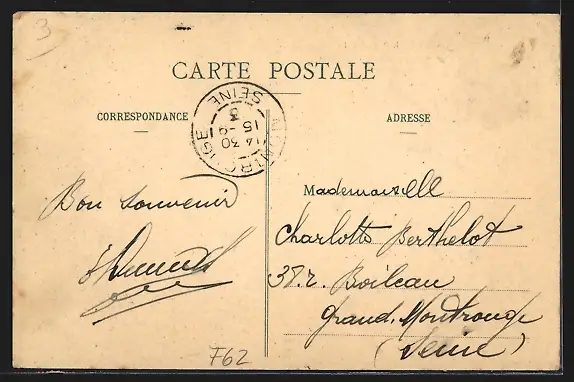 3
CARTE POSTALE
CORRESPONDANCE
ADRESSE
MONTROUGE
SEINE
14 30
15 -9
3
Bon souvenir
Mademoiselle
Charlotte Berthelot
38. r. Boileau
Grand. Montrouge
(Seine)
F62